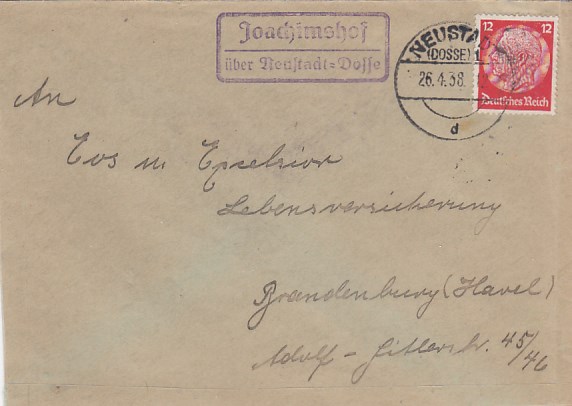 Joachimshof
über Neustadt=Dosse
NEUSTADT
(DOSSE) 1
26.4.38.
d
12 12
Deutsches Reich
An
Eos u. Excelsior
Lebensversicherung
Brandenburg (Havel)
Adolf - Hitlerstr. 45/46